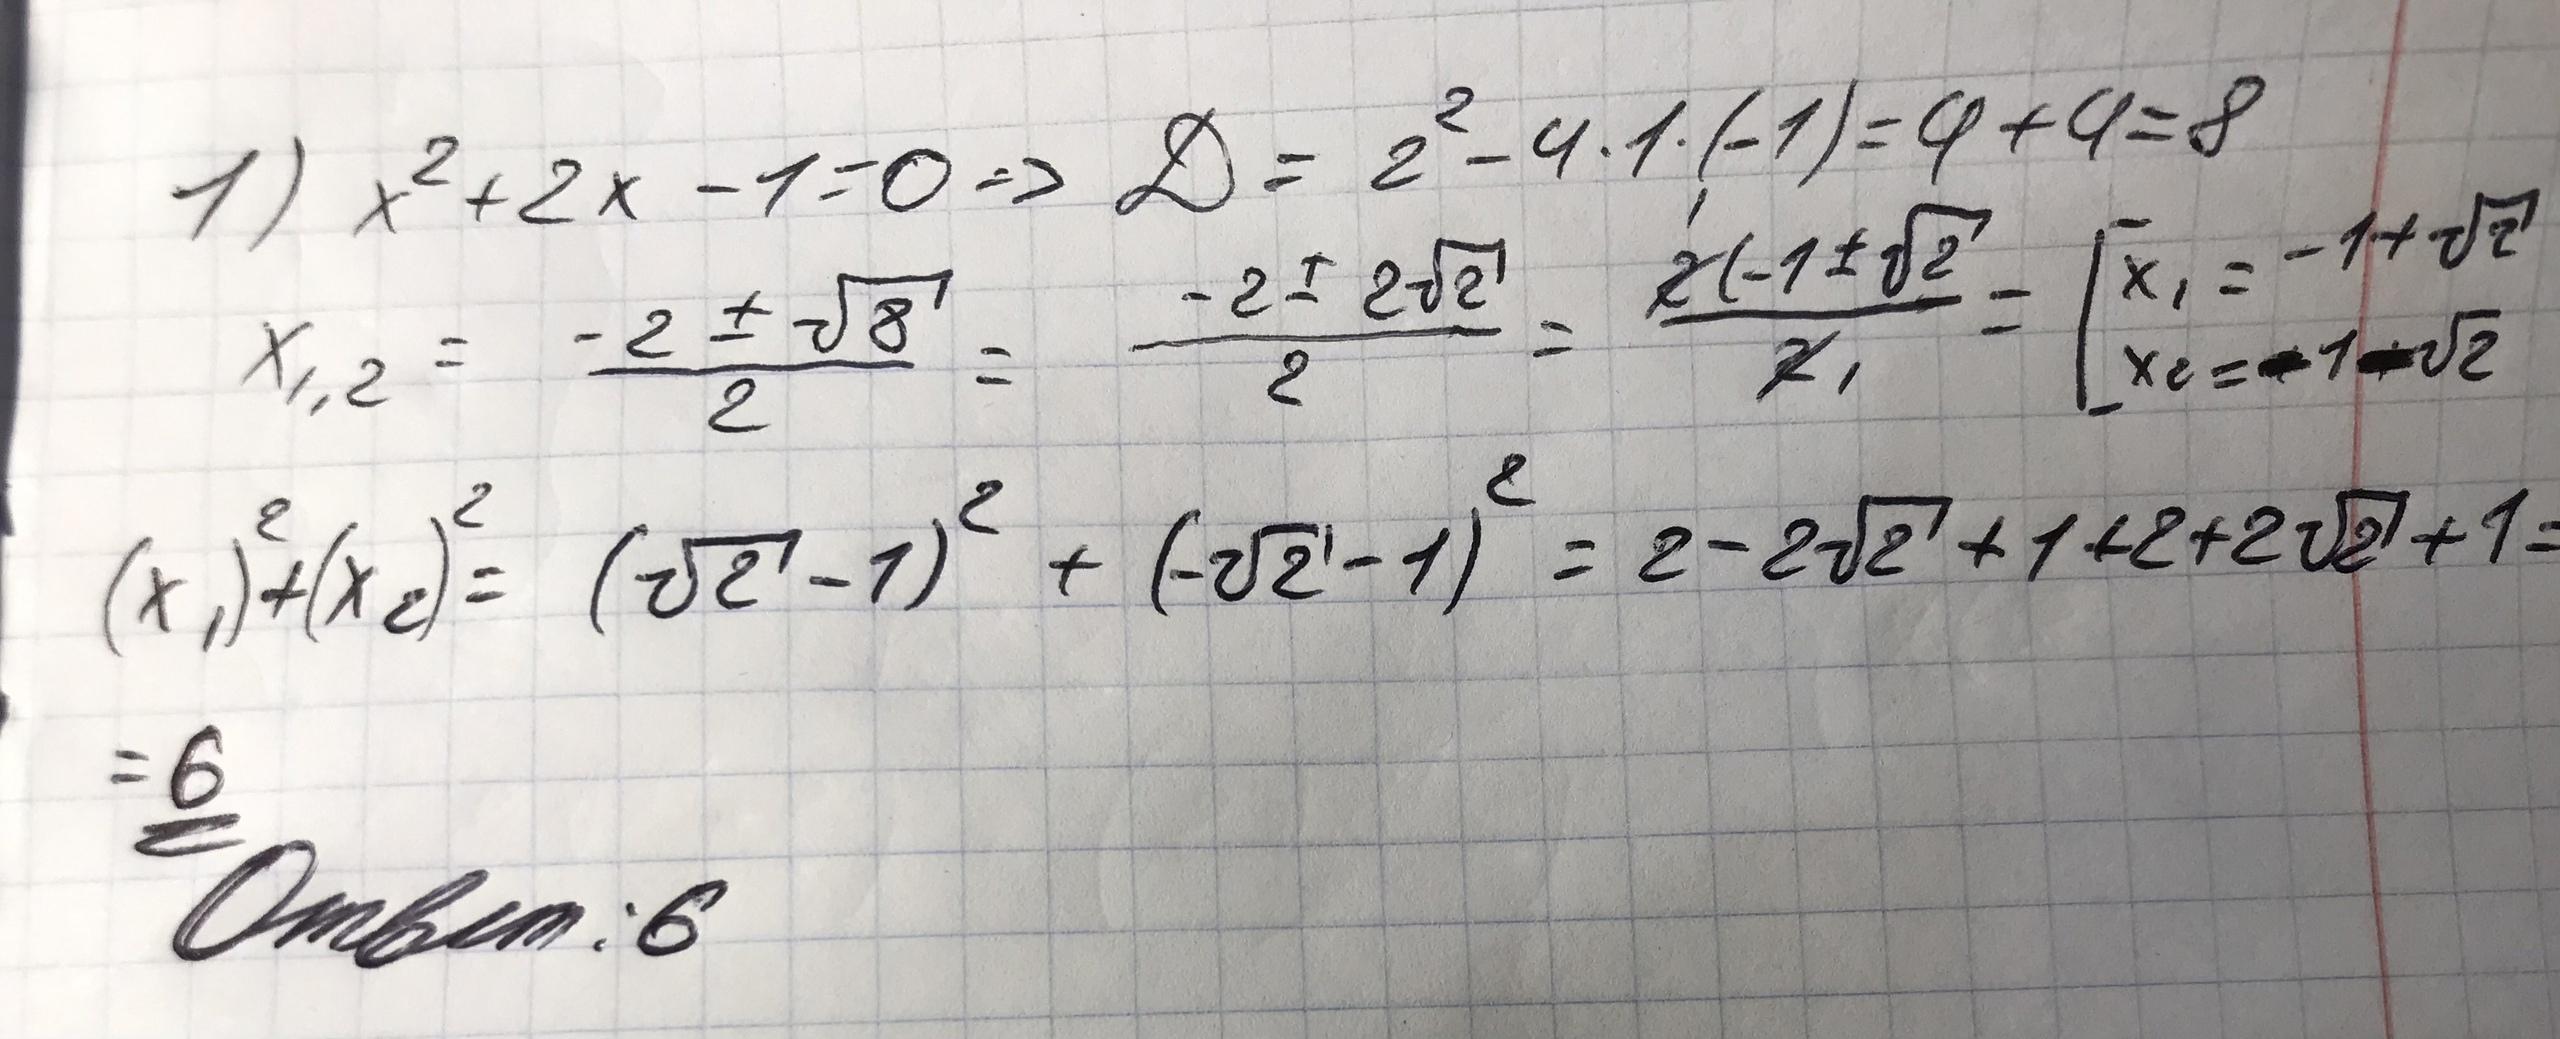 1) x² + 2x - 1 = 0 => D = 2² - 4·1·(-1) = 4 + 4 = 8
x₁,₂ = (-2 ± √8)/2 = (-2 ± 2√2)/2 = 2(-1 ± √2/2 = [x₁ = -1 + √2
x₂ = -1 - √2
(x₁)² + (x₂)² = (√2 - 1)² + (-√2 - 1)² = 2 - 2√2 + 1 + 2 + 2√2 + 1 =
= 6
Ответ: 6